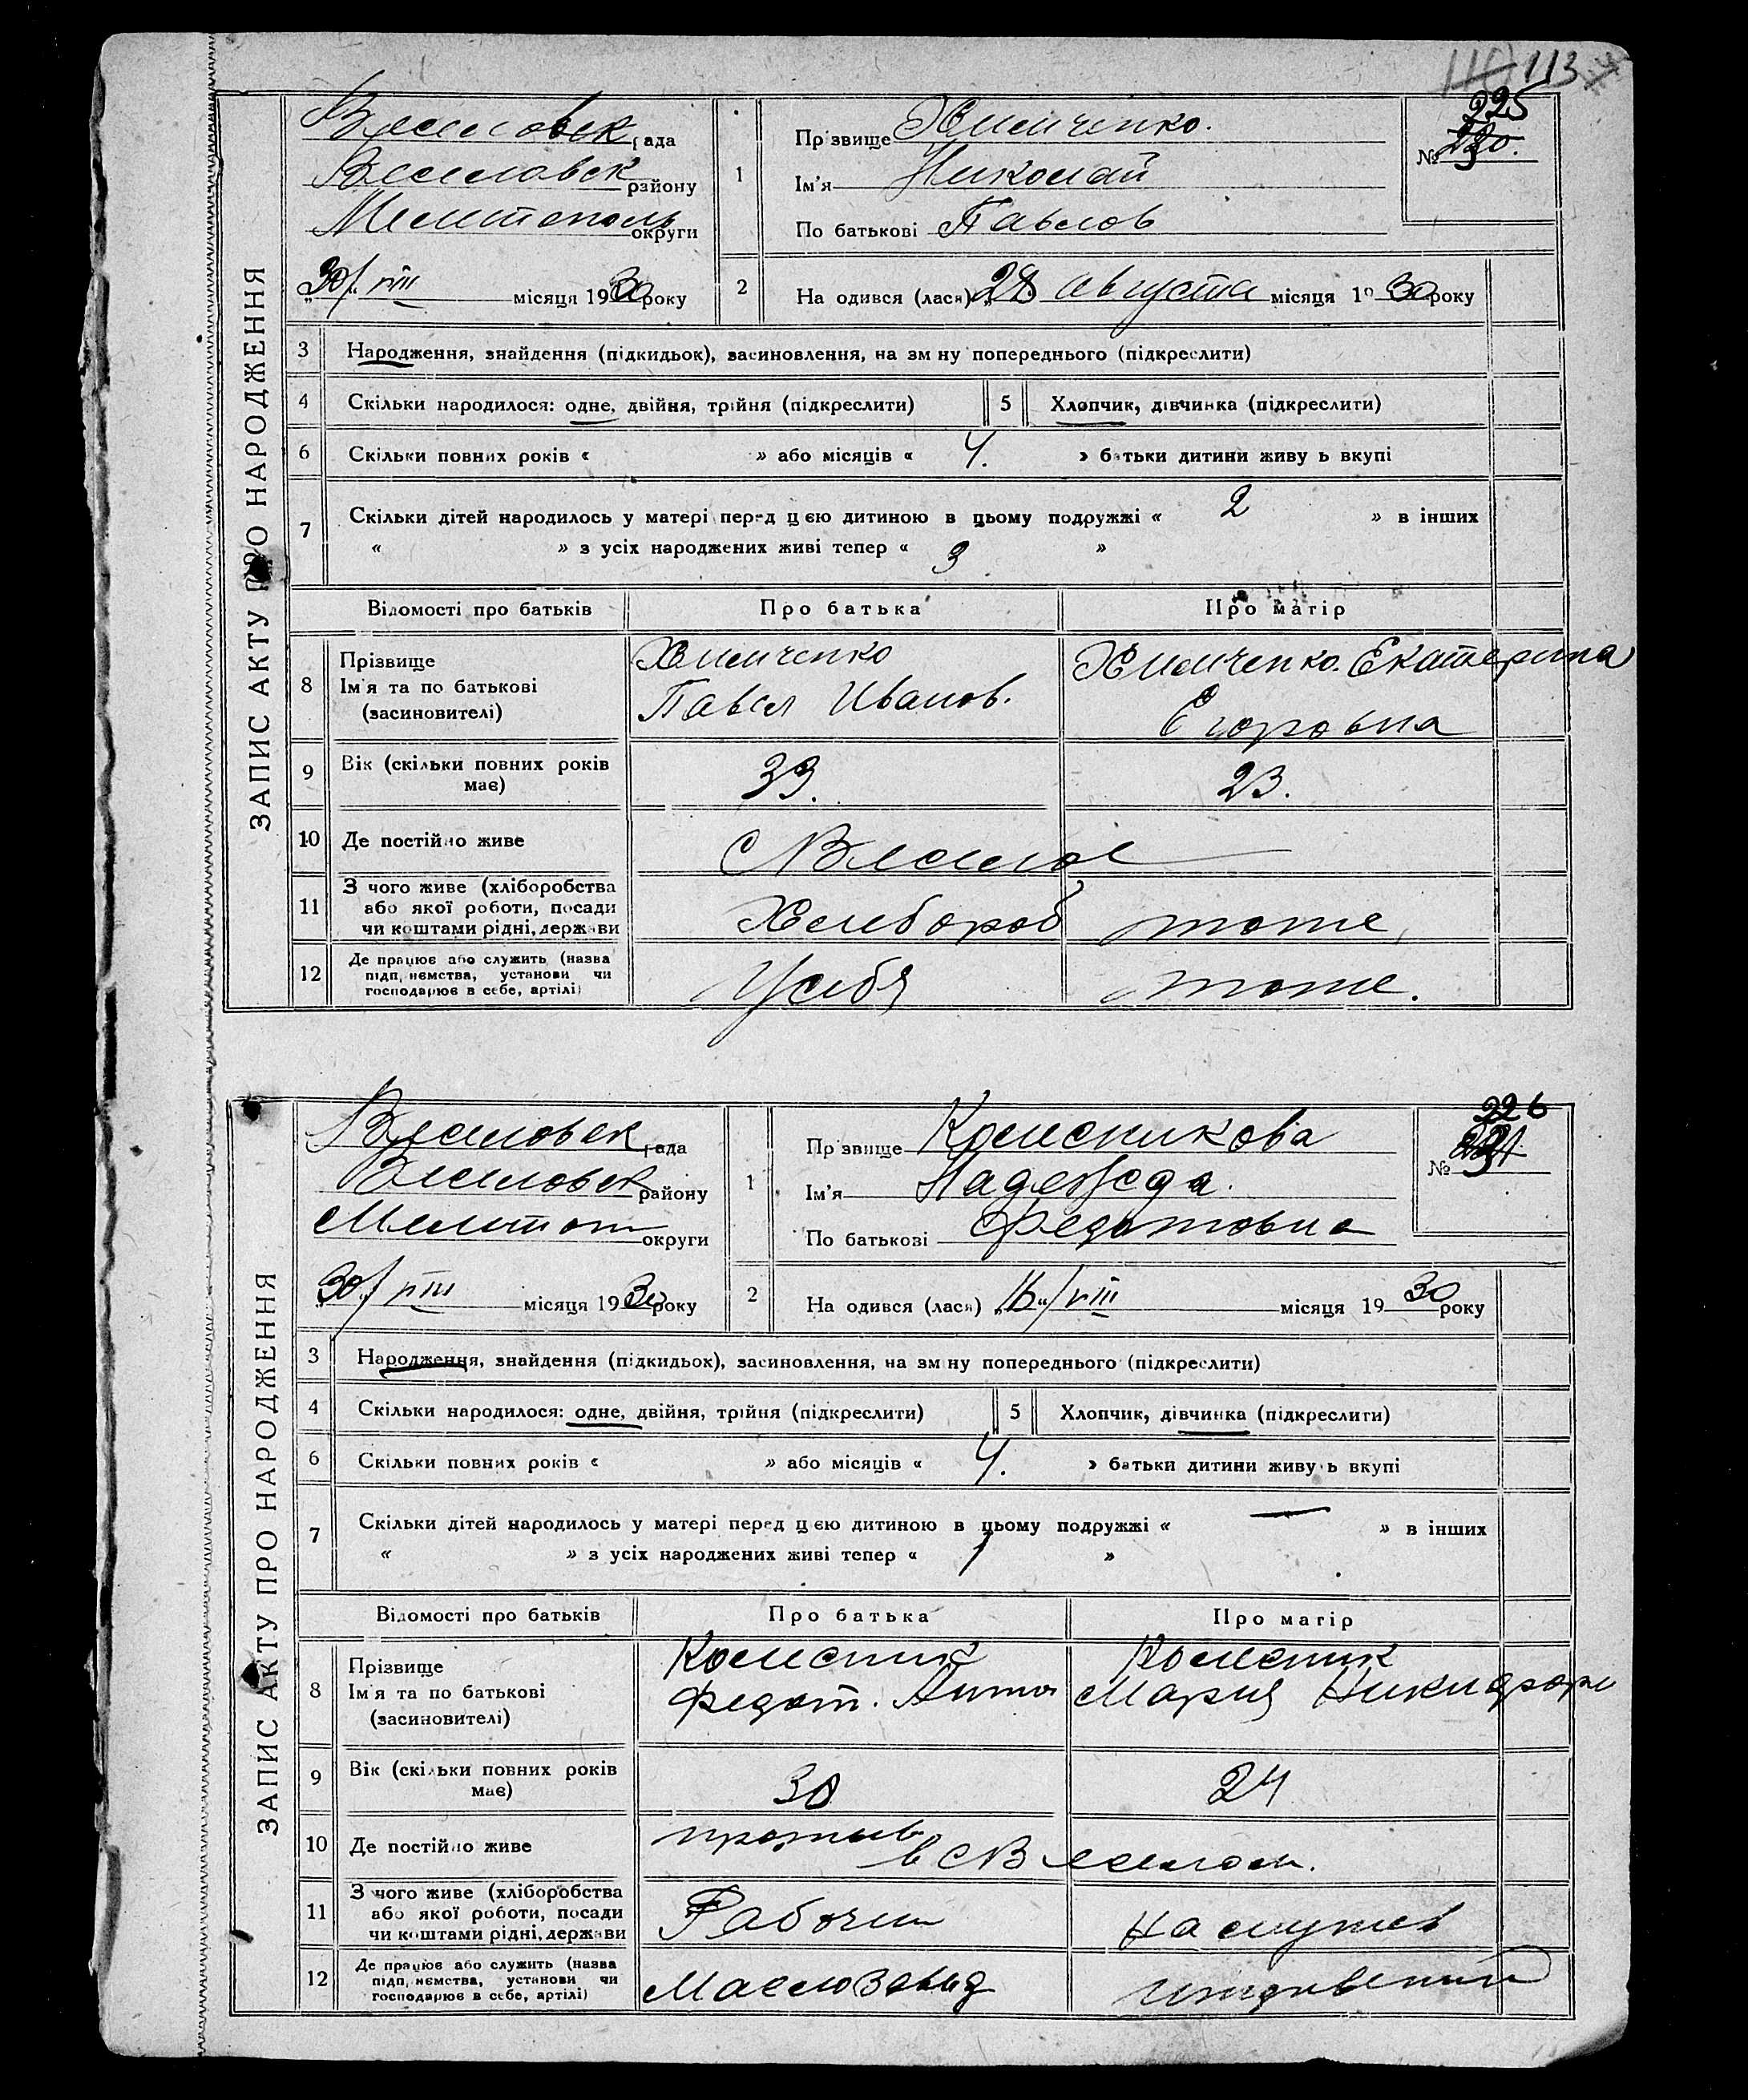 113
ЗАПИС АКТУ ПРО НАРОДЖЕННЯ
Веселовск рада
Веселовск району
Мелитополь округи
„30/VIII місяця 1930 року
1
Прізвище Химченко.
Ім'я Николай
По батькові Павлов
225
№ 220.
2
На одився (лася) „28 августа місяця 1930 року
3 Народження, знайдення (підкидьок), засиновлення, на зм ну попереднього (підкреслити)
4 Скільки народилося: одне, двійня, трійня (підкреслити) 5 Хлопчик, дівчинка (підкреслити)
6 Скільки повних років « » або місяців « 4. » батьки дитини живу ь вкупі
7 Скільки дітей народилось у матері перед цією дитиною в цьому подружжі « 2 » в інших
« » з усіх народжених живі тепер « 3 »
Відомості про батьків Про батька Про матір
8 Прізвище
Ім'я та по батькові
(засиновителі)
Химченко
Павел Иванов.
Химченко. Екатерина
Егоровна
9 Вік (скільки повних років має) 33. 23.
10 Де постійно живе с Веселое
11 З чого живе (хліборобства
або якої роботи, посади
чи коштами рідні, держави
Хлебороб тоже
12 Де працює або служить (назва
підп, иємства, установи чи
господарює в себе, артілі)
У себя тоже.
ЗАПИС АКТУ ПРО НАРОДЖЕННЯ
Веселовск рада
Веселовск району
Мелитоп округи
„30/VIII місяця 1930 року
1
Прізвище Колесникова
Ім'я Надежда.
По батькові Федотовна
226
№ 221
2
На одився (лася) „16„/VIII місяця 1930 року
3 Народження, знайдення (підкидьох), засиновлення, на зм ну попереднього (підкреслити)
4 Скільки народилося: одне, двійня, трійня (підкреслити) 5 Хлопчик, дівчинка (підкреслити)
6 Скільки повних років « » або місяців « 4. » батьки дитини живу ь вкупі
7 Скільки дітей народилось у матері перед цією дитиною в цьому подружжі « — » в інших
« » з усіх народжених живі тепер « 1 »
Відомості про батьків Про батька Про матір
8 Прізвище
Ім'я та по батькові
(засиновителі)
Колесник
Федот.
Колесник
Мария Никифоро
9 Вік (скільки повних років має) 30 24
10 Де постійно живе
в с Веселом.
11 З чого живе (хліборобства
або якої роботи, посади
чи коштами рідні, держави
Рабочи на служб
12 Де працює або служить (назва
підп, иємства, установи чи
господарює в себе, артілі)
Маслозавод иждивений